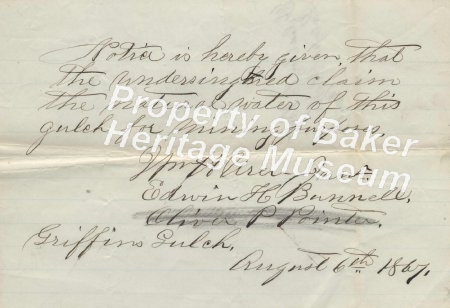 Notice is hereby given that
the undersingned claim
the natural water of this
gulch for mining purposes,
Property of Baker
Heritage Museum
Wm
Edwin H Bunnell,
Oliver P Pointer,
Griffins Gulch,
August 6th 1867,